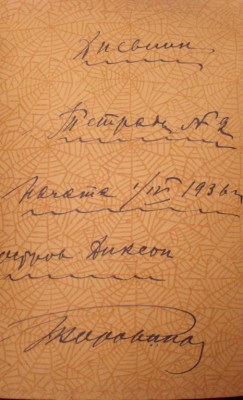 Дневник
Тетрадь № 2
начата 1/IV 1936 г.
остров Диксон